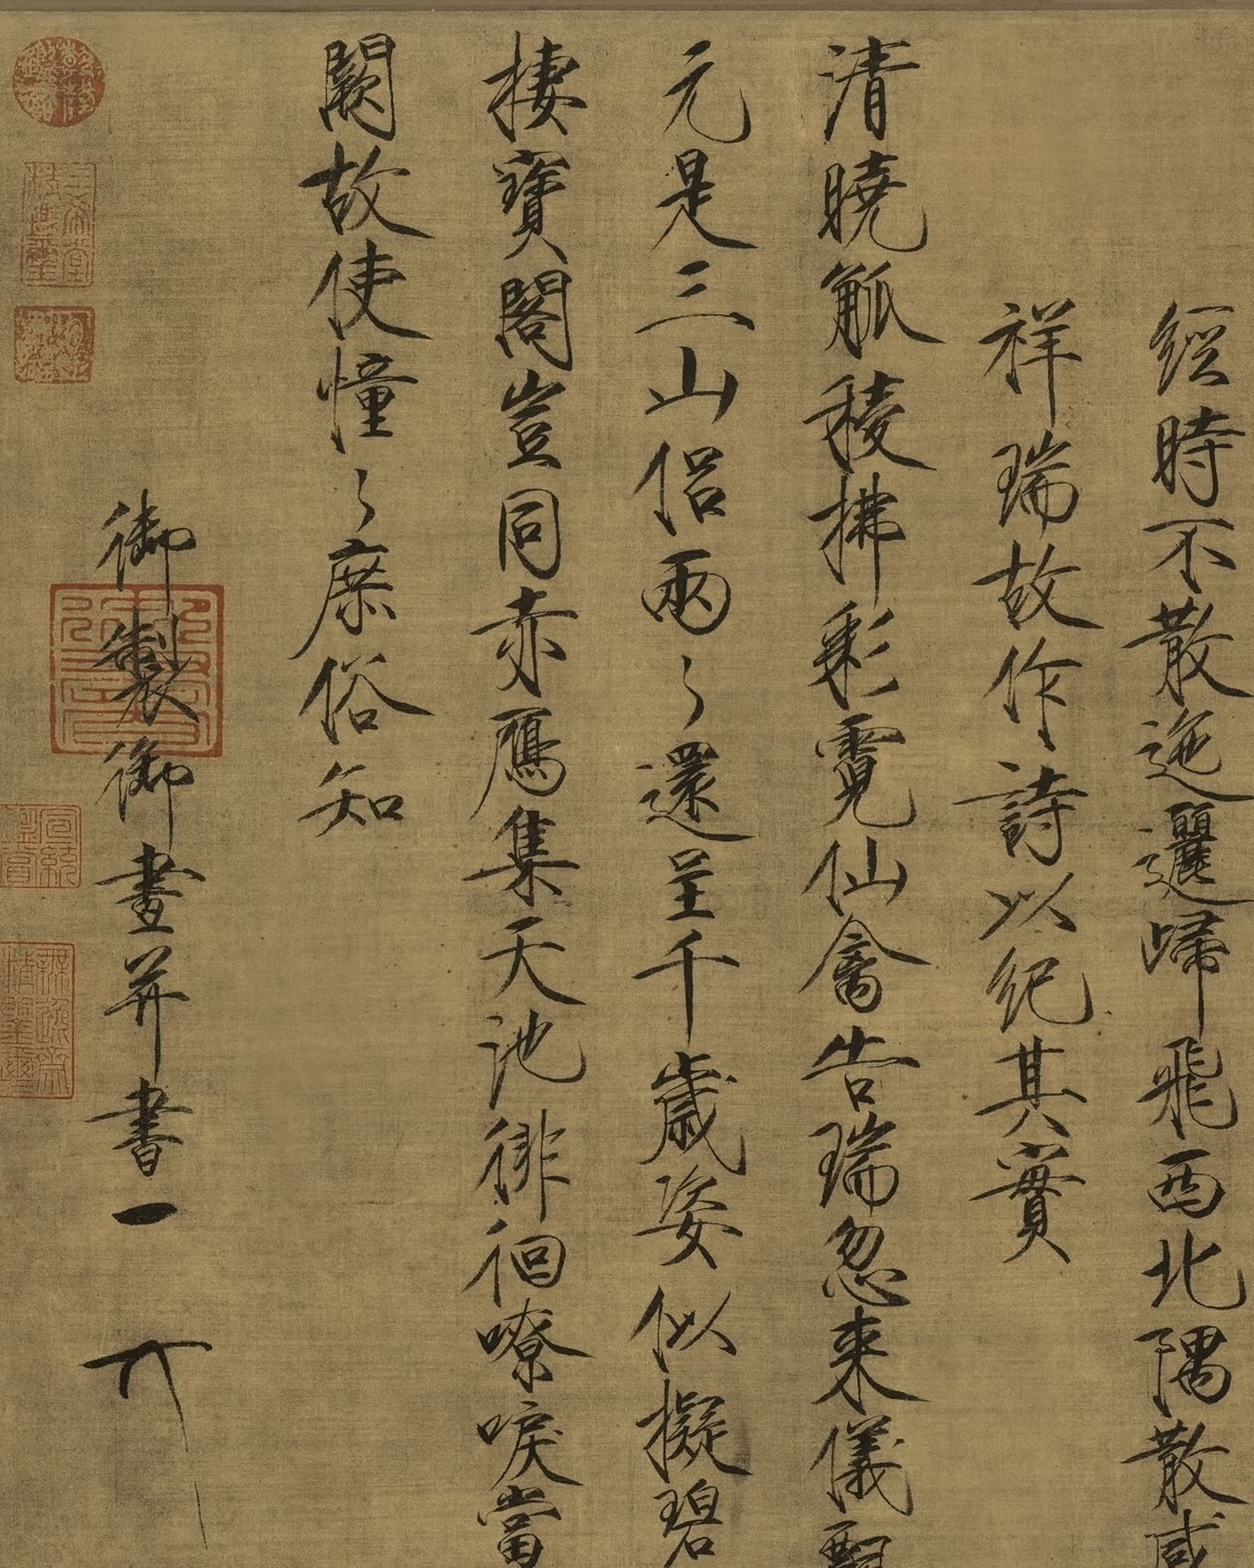 經時不散迤邐歸飛西北隅散感
祥瑞故作詩以紀其實
清曉觚稜拂彩霓仙禽告瑞忽來儀飄
元是三山侶兩〻還呈千歲姿似擬碧
棲寶閣豈同赤鴈集天池徘徊嘹唳當
闕故使憧〻庶俗知
御製御畫并書